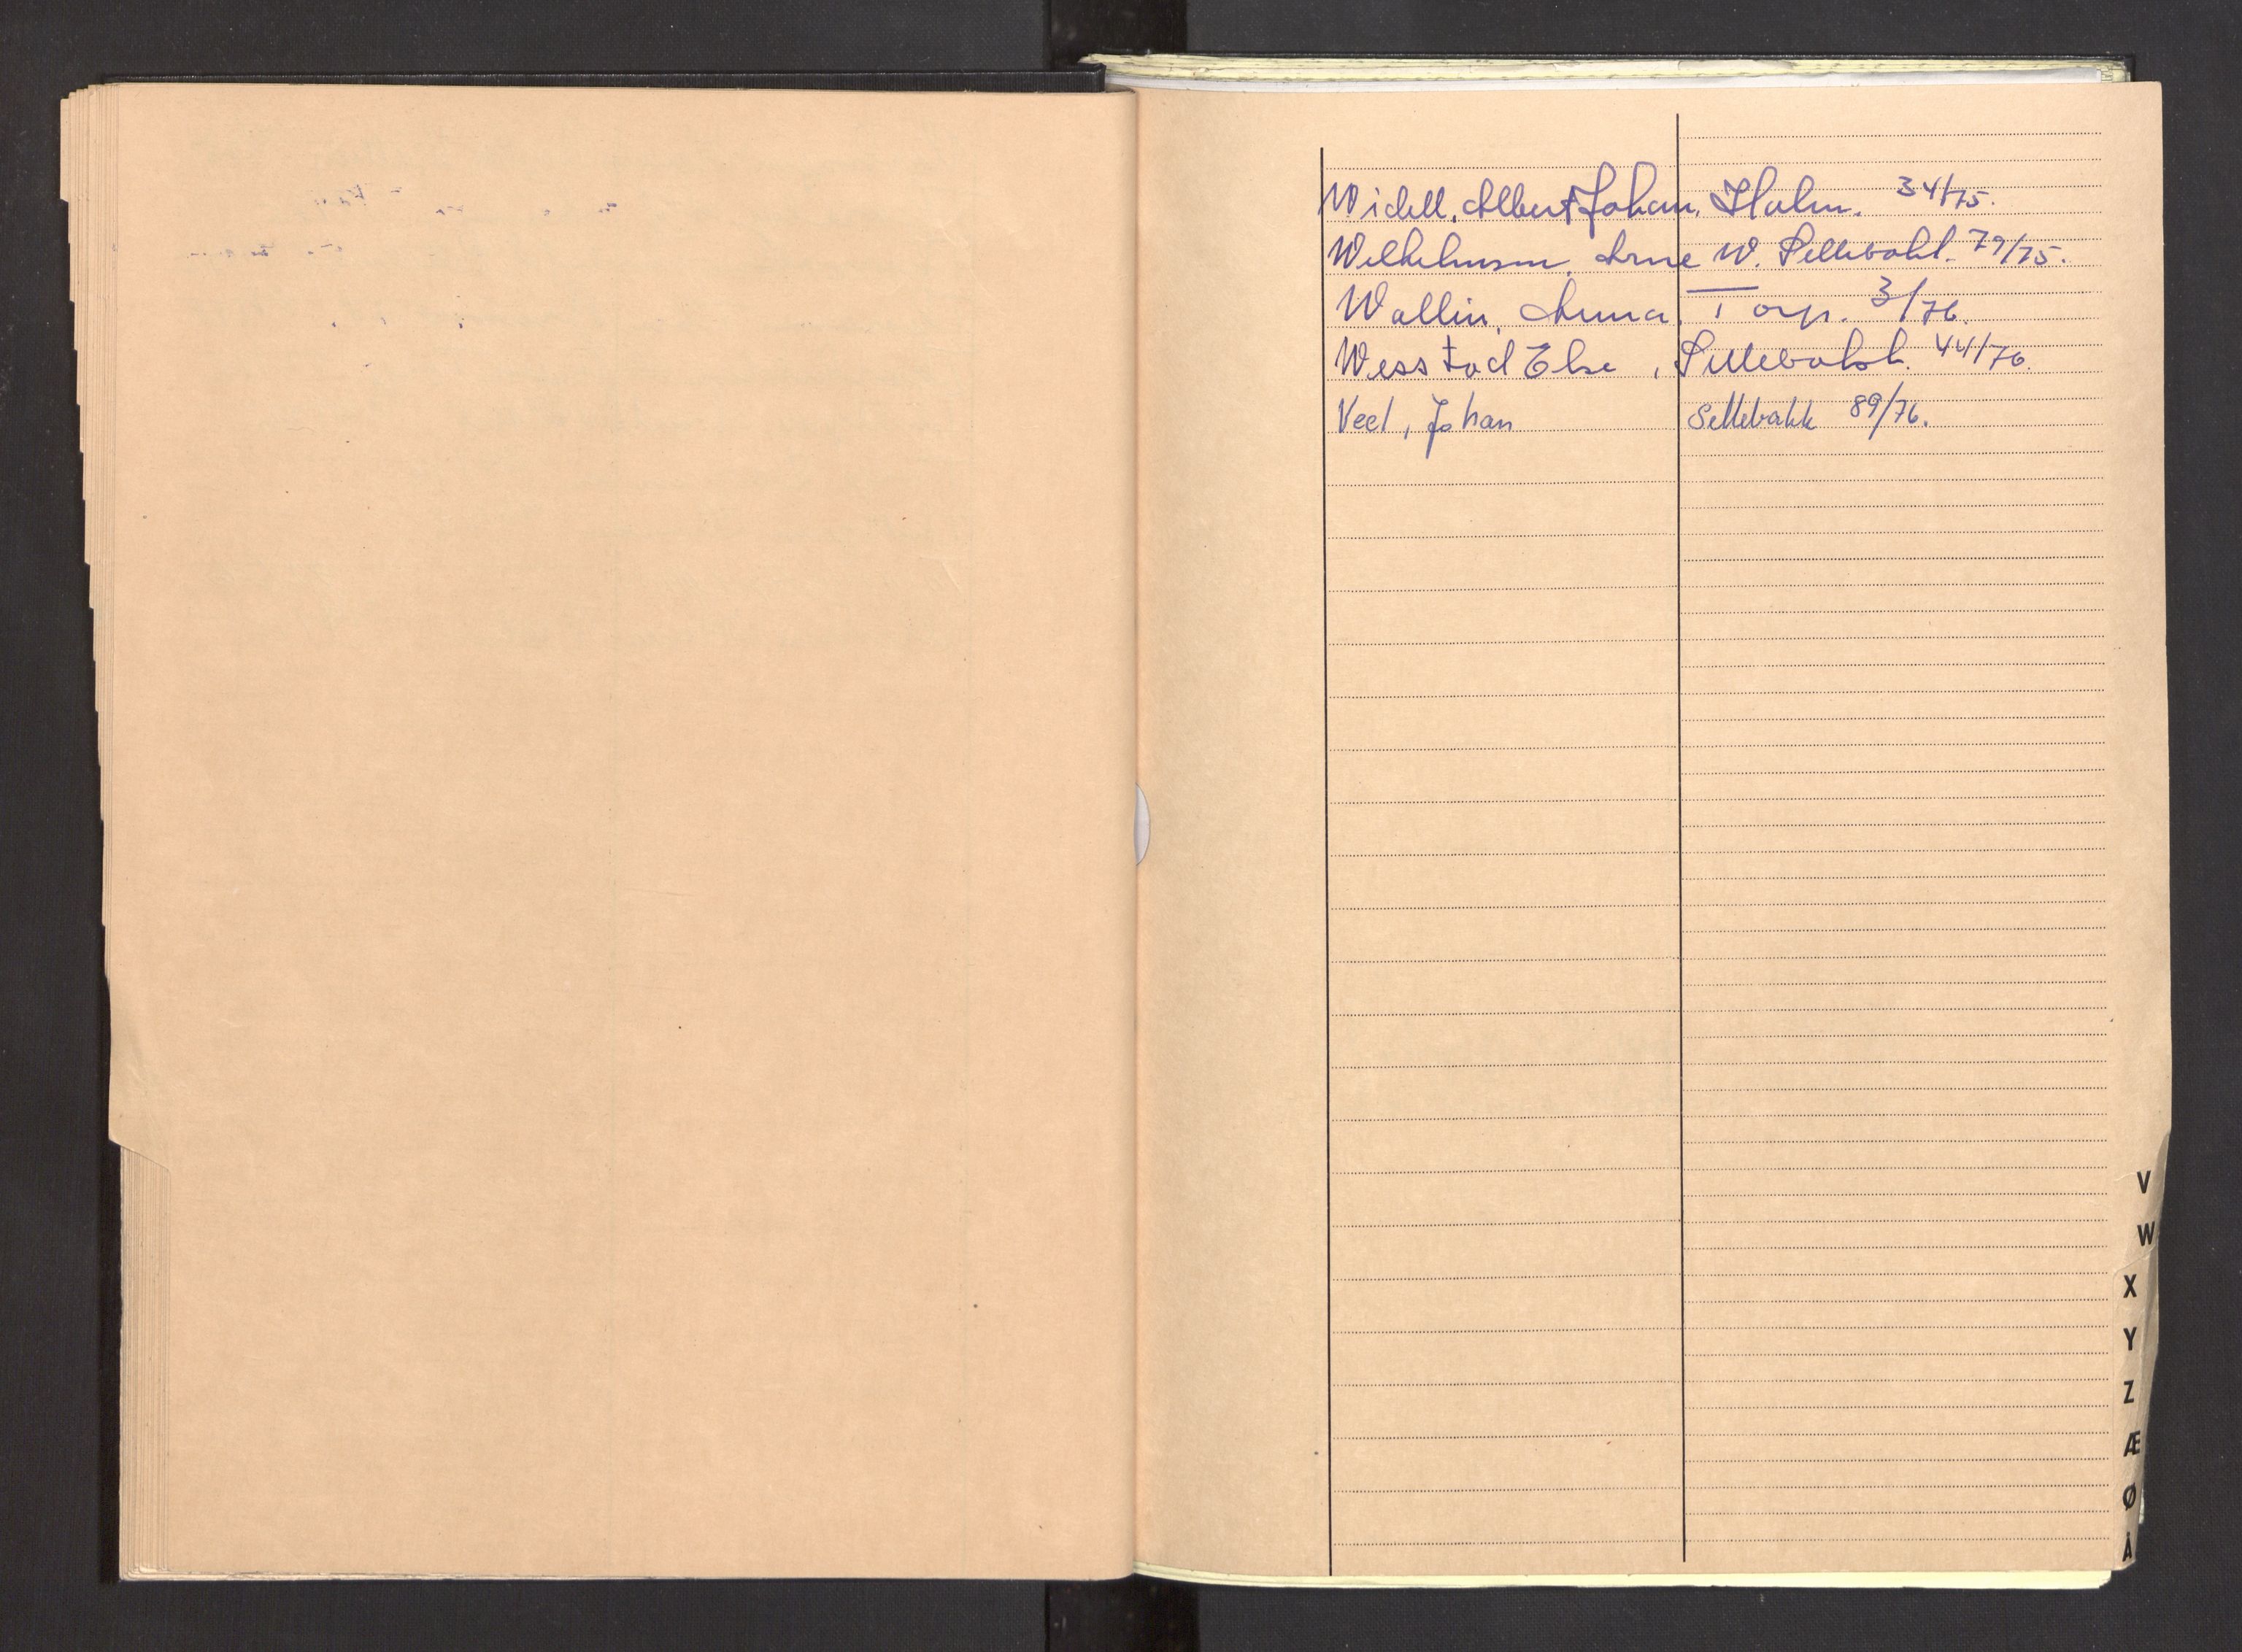 Widell, Albert Johan, Holm. 34/75.
Wilhelmsen, Arne W. Sellebakk. 79/75.
Wallin, Anna. Torp. 3/76.
Wesstad Else, Sellebakk. 44/76.
Veel, Johan Sellebakk 89/76.
V
W
X
Y
Z
Æ
Ø
Å